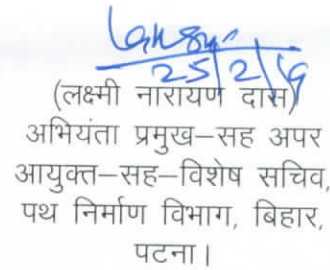 25/2/19
(लक्ष्मी नारायण दास)
अभियंता प्रमुख–सह अपर
आयुक्त–सह–विशेष सचिव,
पथ निर्माण विभाग, बिहार,
पटना।